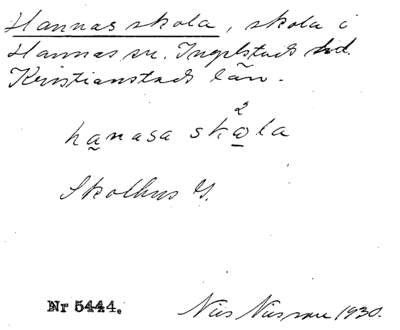 Hannas skola, skola i
Hannas sn. Ingelstads hd.
Kristianstads län.
hanasa skola
2
Skolhus G.
Nr 5444.
Nils Nilsson 1930.